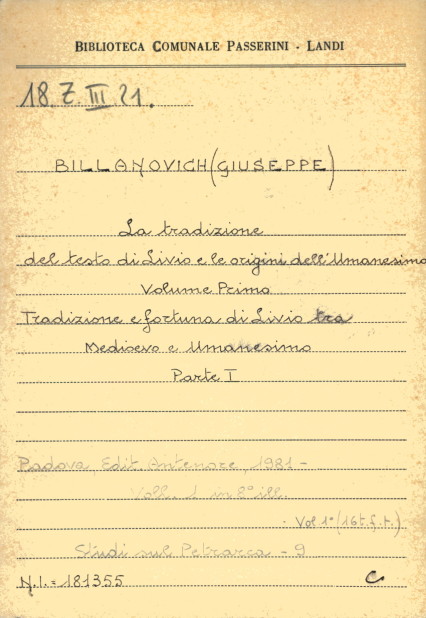 BIBLIOTECA COMUNALE PASSERINI - LANDI
18. Z. III 21.
BILLANOVICH (GIUSEPPE)
La tradizione
del testo di Livio e le origini dell'Umanesimo
Volume Primo
Tradizione e fortuna di Livio tra
Medioevo e Umanesimo
Parte I
Padova, Edit. Antenore, 1981 -
Voll. 1 in 8° ill.
Vol 1° (16 t. f. t.)
Studi sul Petrarca - 9
N.I. = 181355 C.